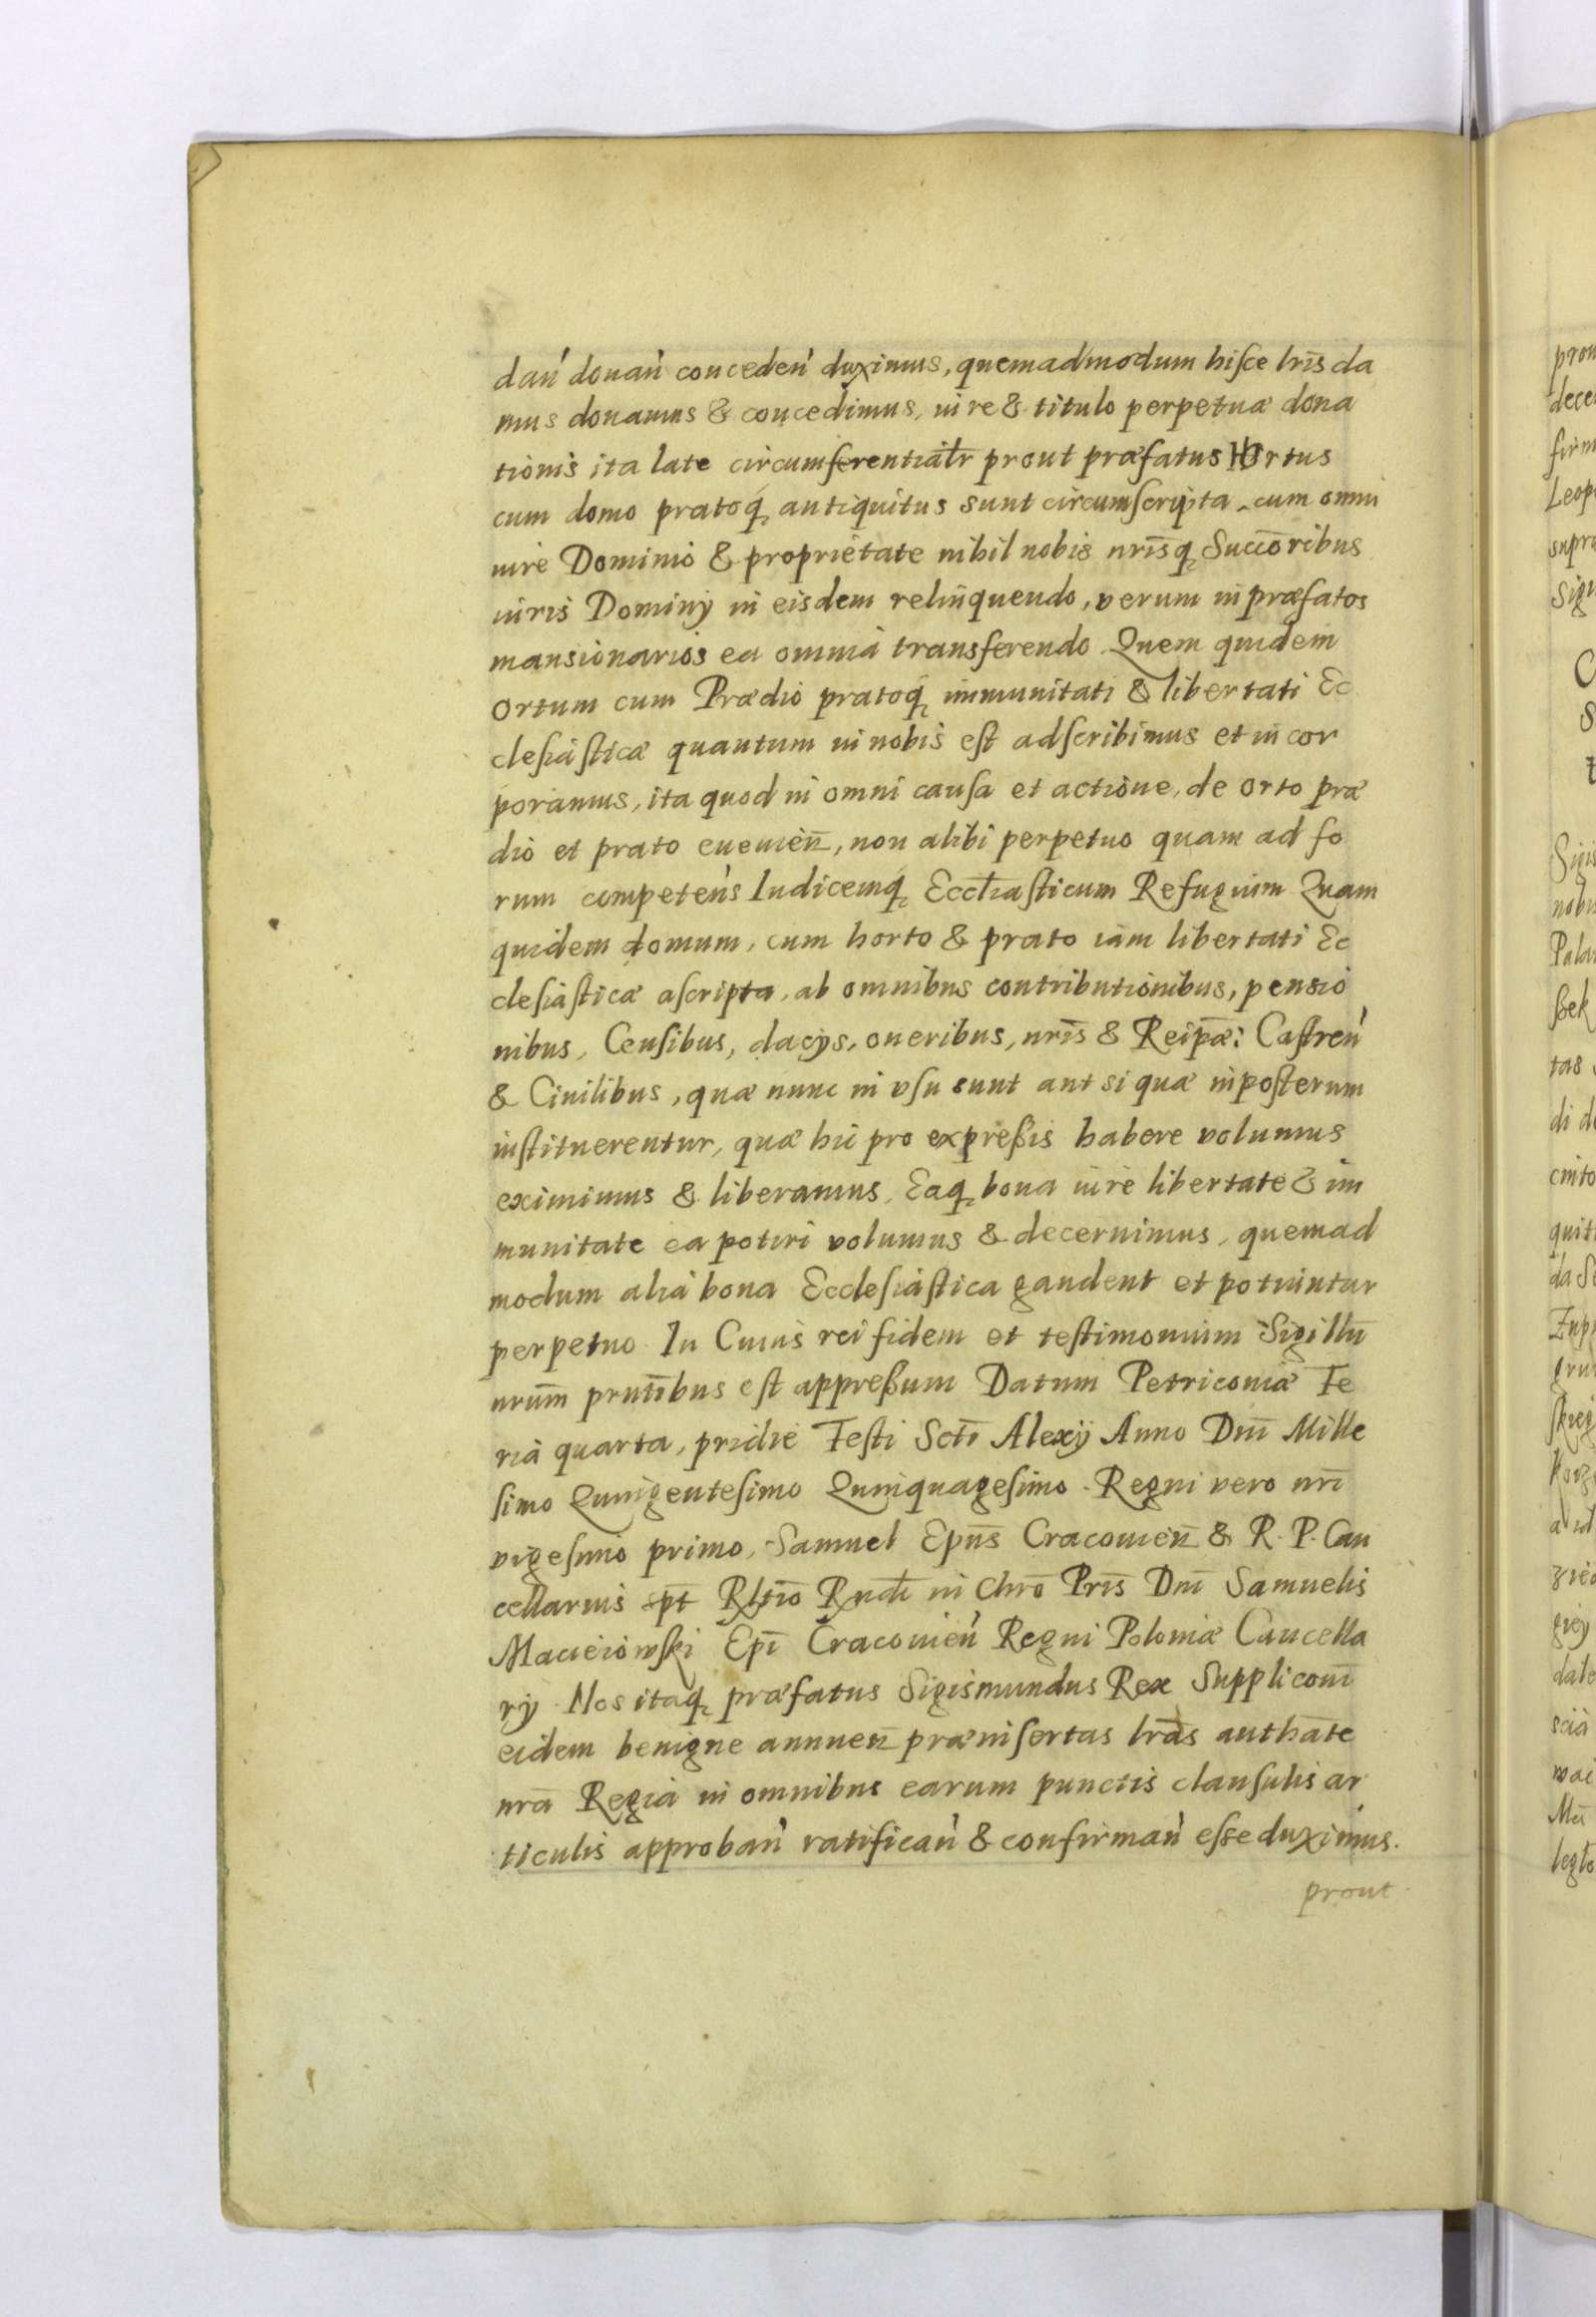 dań donań conceden̍ duximus, quemadmodum hisce lr̄is da
mus donamus & concedimus, iure & titulo perpetuæ dona
tionis ita late circumferentialr̄ prout præfatus Hortus
cum domo pratoq́ꝫ antiquitus sunt circumscripta, cum omni
iure Dominio & proprietate nihil nobis nr̄isqꝫ Succōribus
iuris Dominÿ in eisdem relinquendo, verum in præfatos
mansionarios ea omnia transferendo. Quem quidem
ortum cum Prædio pratoq́ꝫ immunitati & libertati Ec
clesiasticæ quantum in nobis est adscribimus et incor
poramus, ita quod in omni causa et actione, de orto præ
dio et prato evenien̄, non alibi perpetuo quam ad fo
rum competen̍s Iudicemq́ꝫ Eccl̄iasticum Refugium Quam
quidem domum, cum horto & prato iam libertati Ec
clesiasticæ ascripta, ab omnibus contributionibus, pensio
nibus, Censibus, dacÿs, oneribus, nr̄is & Reip̄æ: Castren̍
& Ciuilibus, quæ nunc in vsu sunt aut si quæ inposterum
instituerentur, quæ hic pro expreßis habere volumus
eximimus & liberamus, Eaqꝫ bona iure libertate & im
munitate ea potiri volumus & decernimus, quemad
modum alia bona Ecclesiastica gaudent et potiuntur
perpetuo. In Cuius rei fidem et testimonium Sigillū
nrūm pn̄tibus est appreßum Datum Petriconiæ Fe
ria quarta, pridie Festi Sctī Alexÿ Anno Dnī Mille
simo Quingentesimo Quinquagesimo. Regni vero nrī
vigesimo primo, Samuel Epn̄s Cracouien̄ & R. P. Can
cellarius sp̄t Rltīo Rndī in Chrō Prīs Dnī Samuelis
Macieiowski Epī Cracouien̍ Regni Poloniæ Cancella
rÿ. Nos itaqꝫ præfatus Sigismundus Rex Supplicōni
eidem benigne annuen̄ præinsertas lrās authāte
nrā Regia in omnibus earum punctis clausulis ar
ticulis approban̍ ratifican̍ & confirman̍ esse duximus.
prout